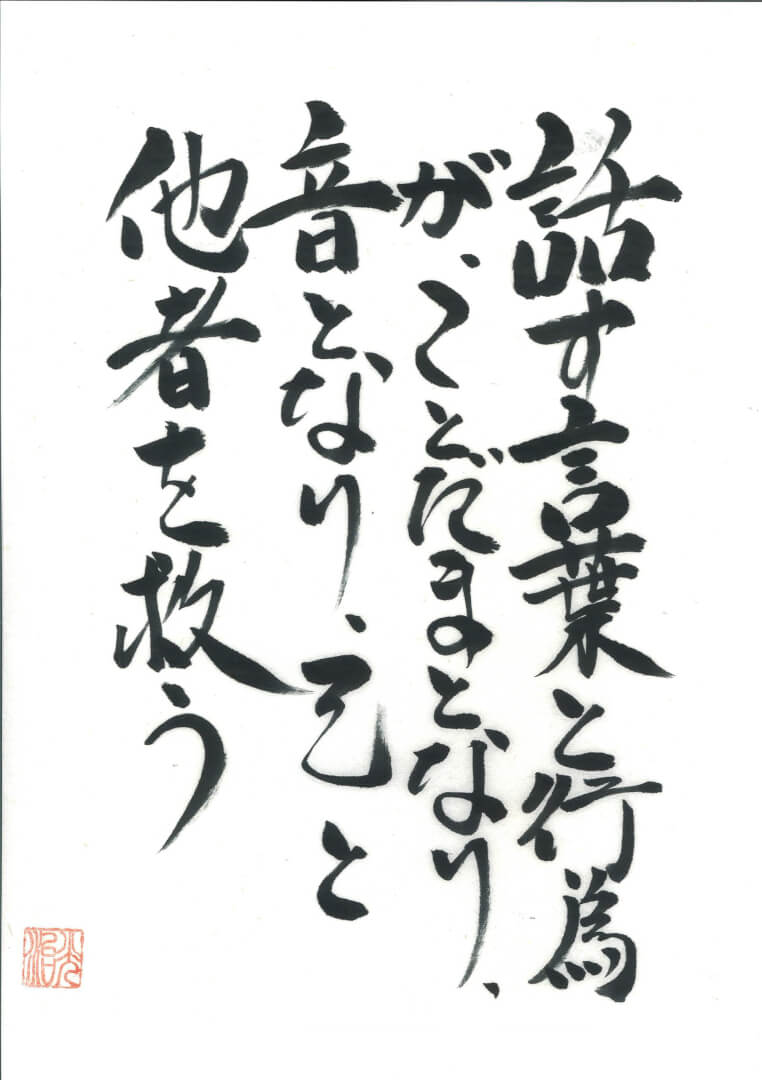 話す言葉と行為
が、ことだまとなり、
音となり、己と
他者を救う